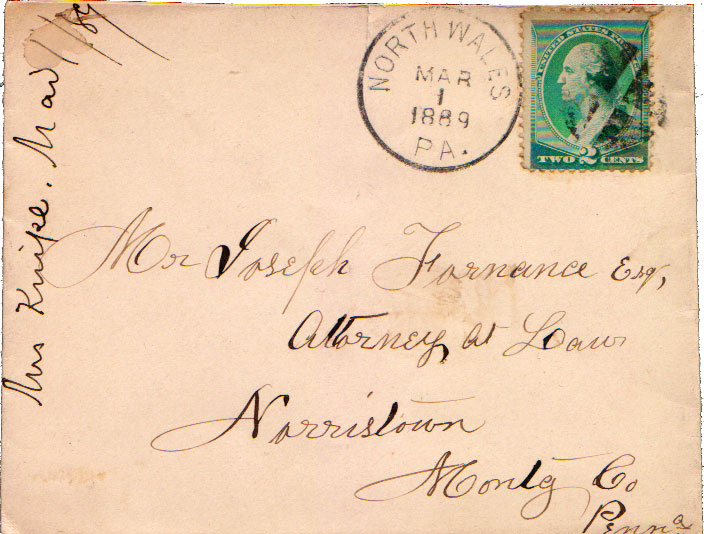 NORTH WALES
MAR
1
1889
PA.
UNITED STATES POSTAGE
TWO 2 CENTS
Mr Joseph Fornance Esq,
Attorney, at Law
Norristown
Montg Co
Penna
Mrs Knipe. Mar 1/89